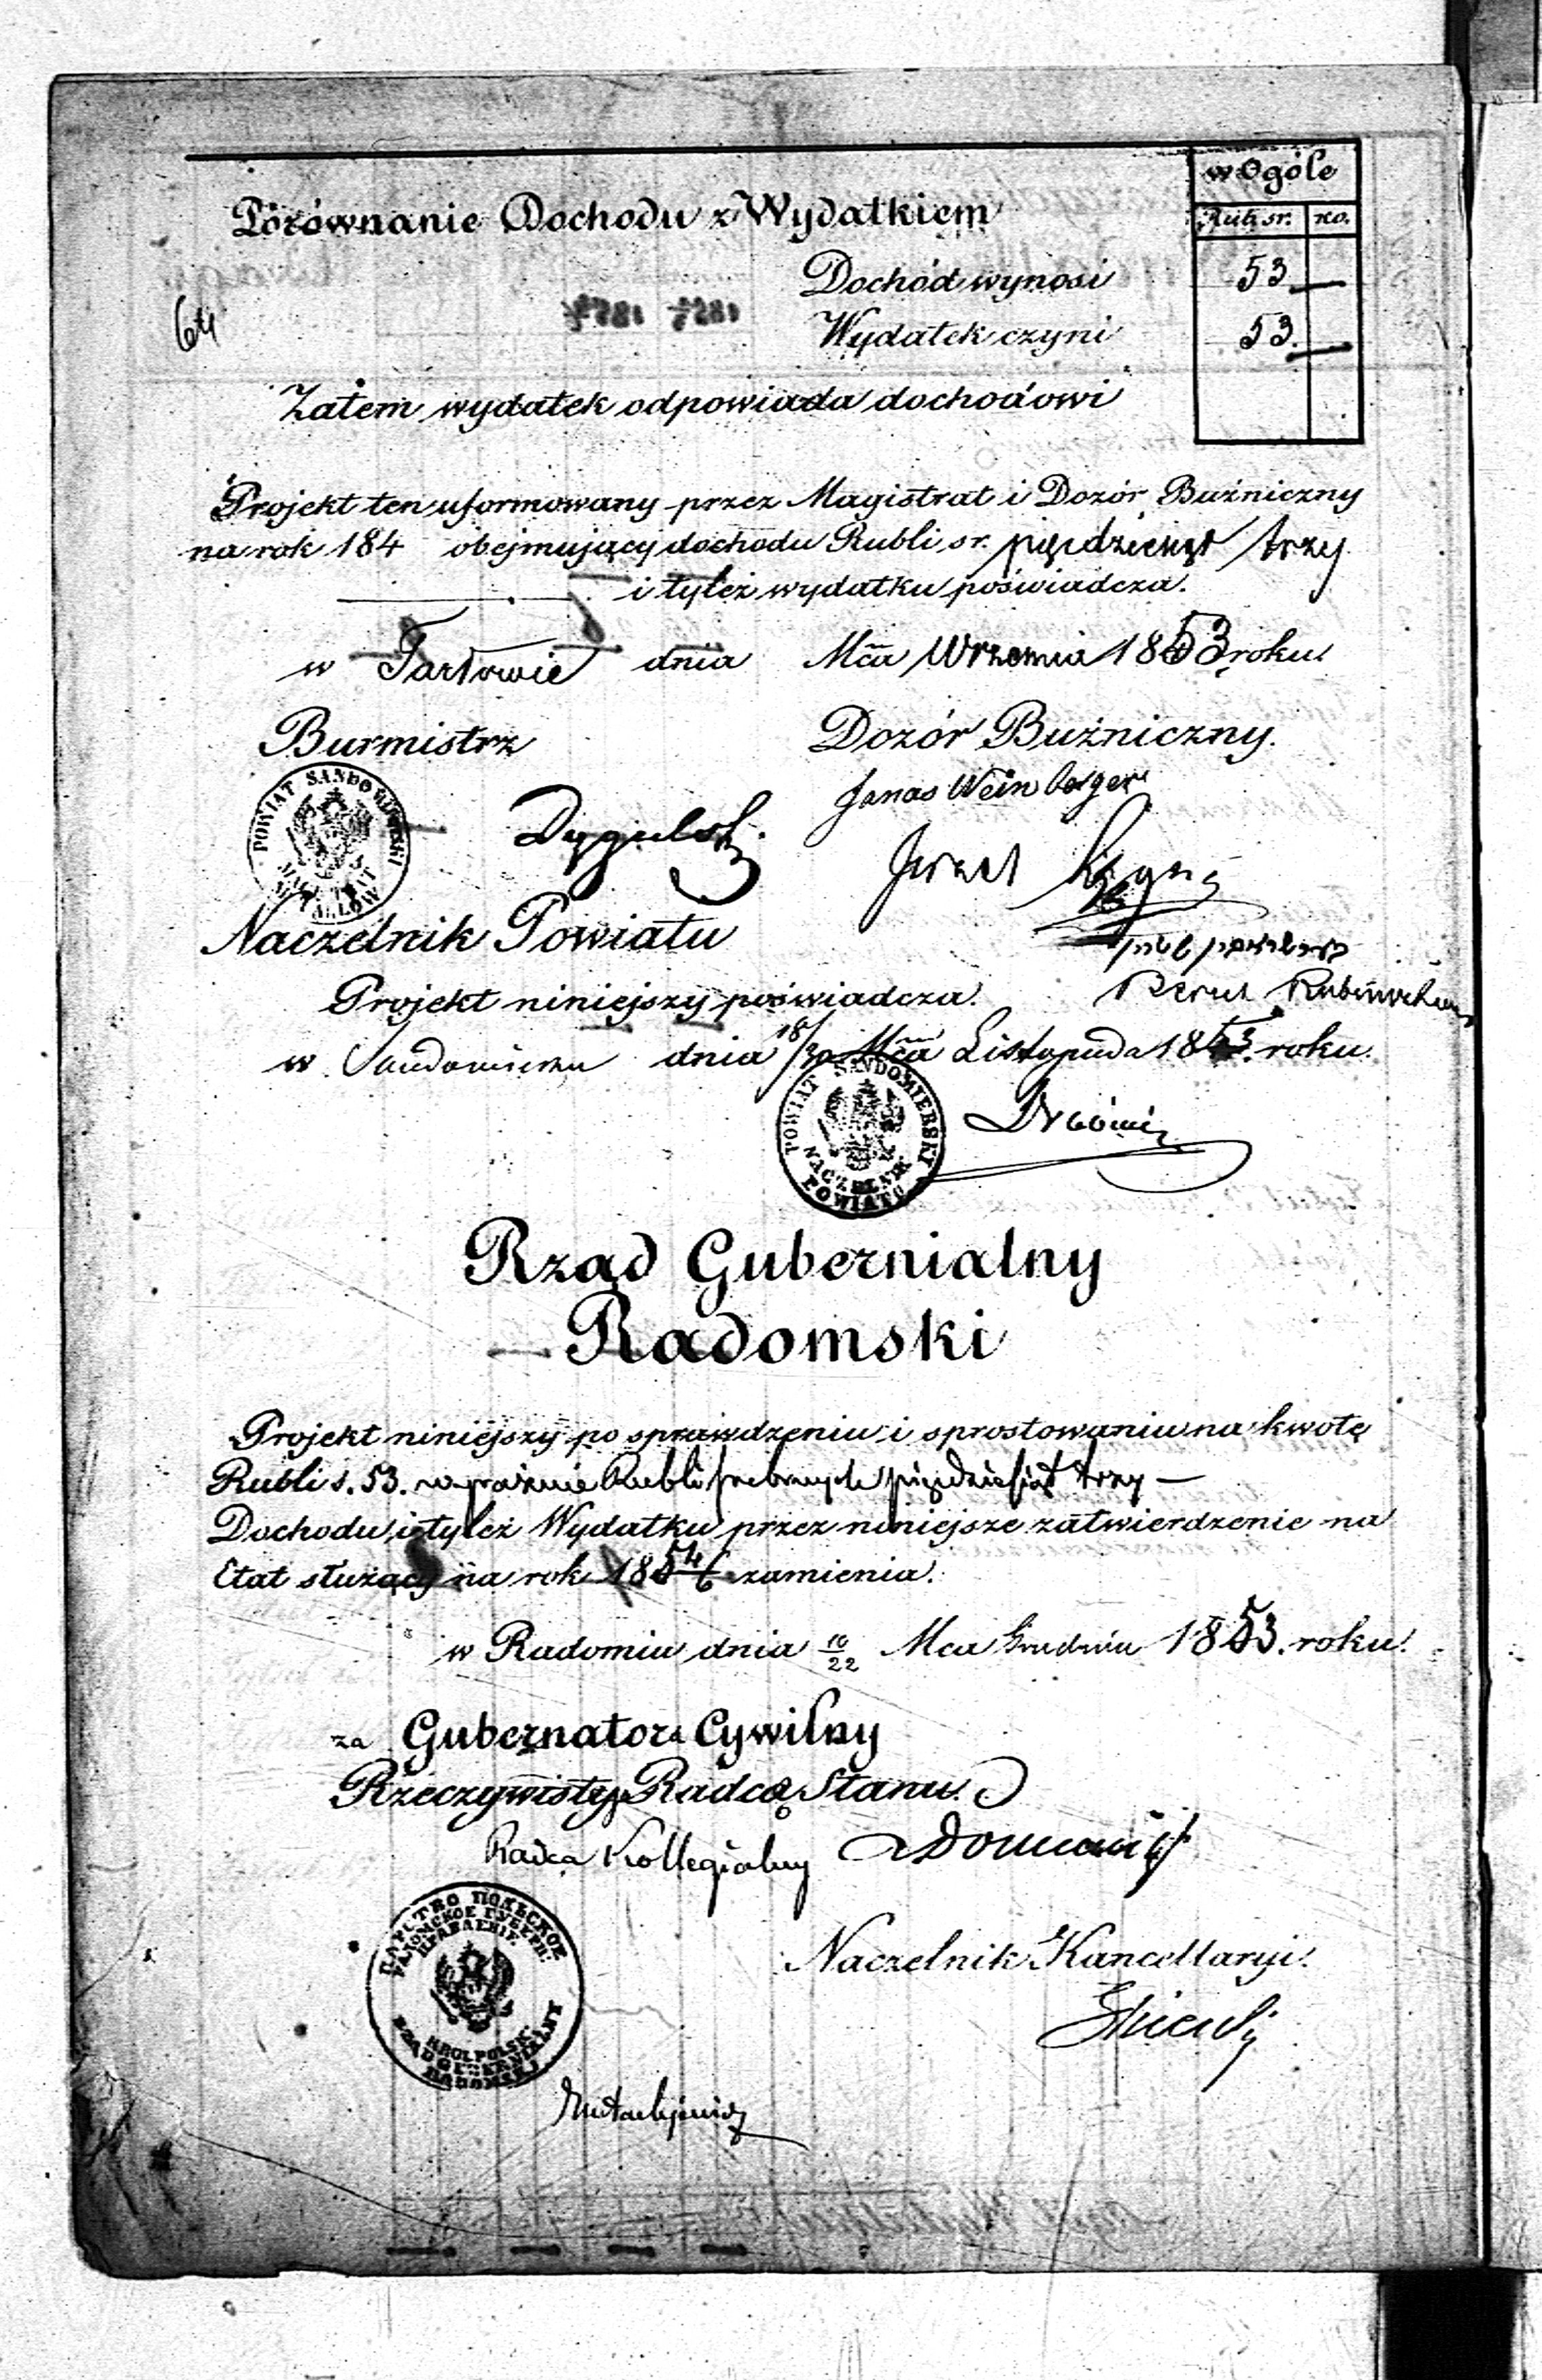 w Ogóle
Rub. sr. ko.
Porównanie Dochodu z Wydatkiem
Dochód wynosi 53 —
Wydatek czyni 53. —
Zatem wydatek odpowiada dochodowi
Projekt ten uformowany przez Magistrat i Dozór Bużniczny
na rok 184 obejmujący dochodu Rubli sr. pięćdziesiąt trzy
i tyleż wydatku poświadcza.
w Tarłowie dnia Mca Września 1853 roku.
Burmistrz Dozór Bużniczny.
Janas Weinberger
POWIAT SANDOMIERSKI
Naczelnik Powiatu
Projekt niniejszy poświadcza.
w Sandomierzu dnia 18/30 Mca Listopada 1853. roku.
POWIAT SANDOMIERSKI
NACZELNIK
POWIATU
Rząd Gubernialny
Radomski
Projekt niniejszy po sprawdzeniu i sprostowaniu na kwotę
Rubli s. 53. wyraźnie Rubli srebrnych pięćdziesiąt trzy —
Dochodu i tyleż Wydatku przez niniejsze zatwierdzenie na
Etat służący na rok 1854/6 zamienia.
w Radomiu dnia 10/22 Mca Grudnia 1853. roku.
za Gubernatora Cywilny
Rzeczywisty Radca Stanu.
Radca Kollegialny
ЦАРСТВО ПОЛЬСКОЕ
РАДОМСКОЕ ГУБЕРН.
ПРАВЛЕНІЕ
KROL. POLSK.
RZĄD GUBERNIALNY
RADOMSKI
Naczelnik Kancellaryi.